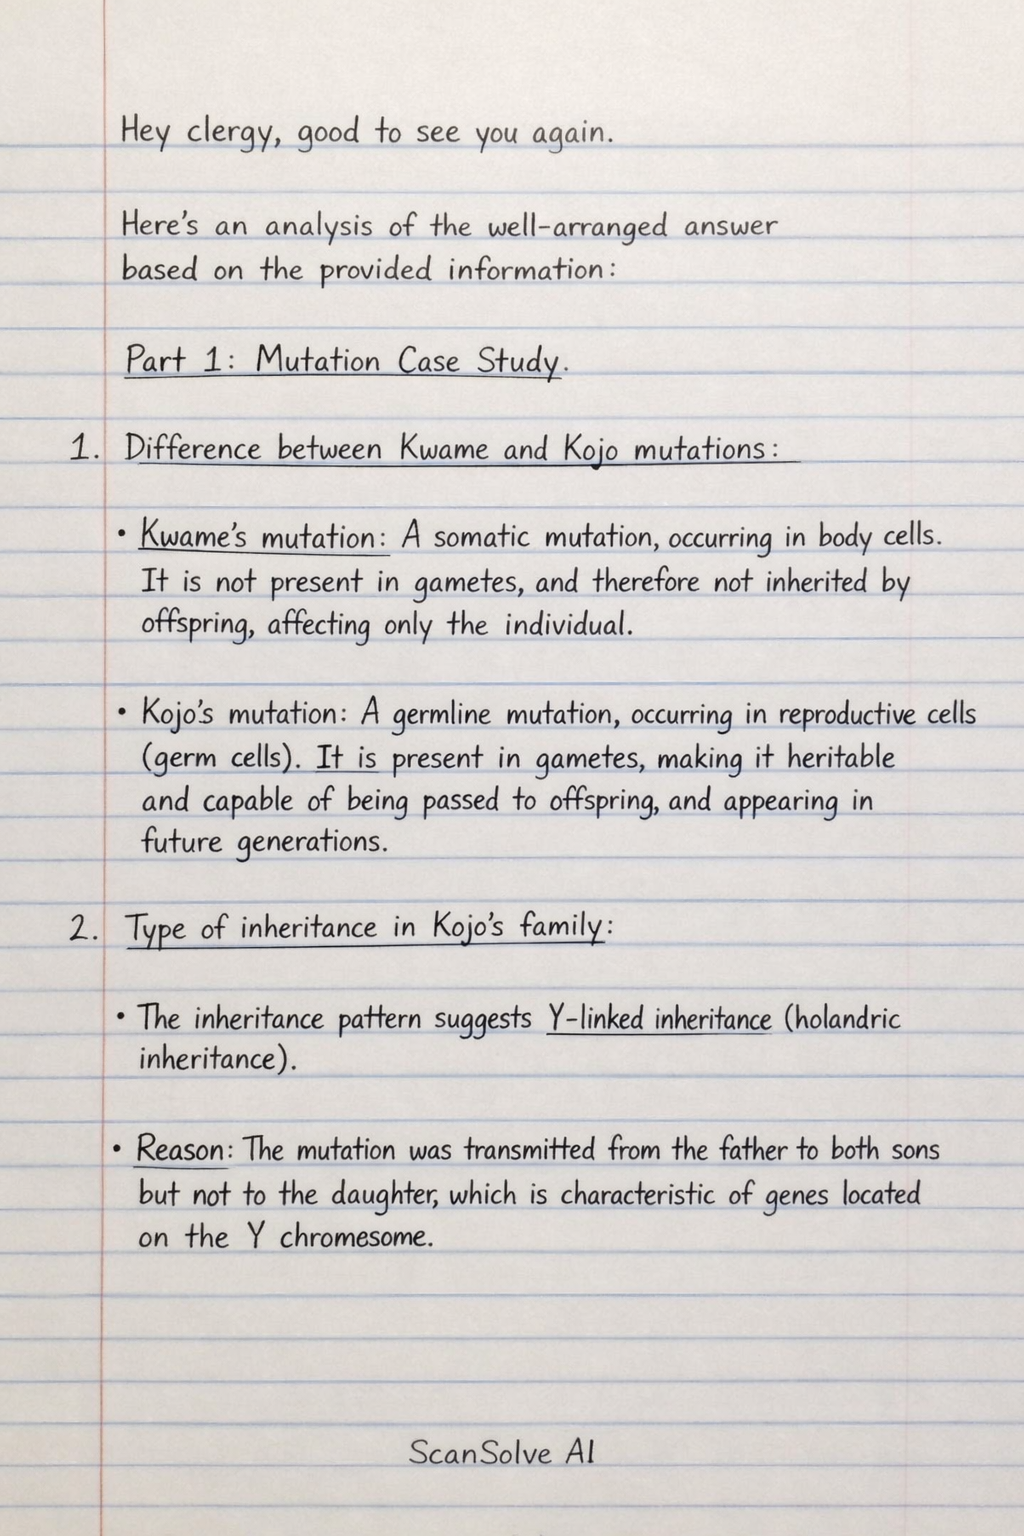 Hey clergy, good to see you again.
Here's an analysis of the well-arranged answer
based on the provided information:
Part 1: Mutation Case Study.
1. Difference between Kwame and Kojo mutations:
• Kwame's mutation: A somatic mutation, occurring in body cells.
It is not present in gametes, and therefore not inherited by
offspring, affecting only the individual.
• Kojo's mutation: A germline mutation, occurring in reproductive cells
(germ cells). It is present in gametes, making it heritable
and capable of being passed to offspring, and appearing in
future generations.
2. Type of inheritance in Kojo's family:
• The inheritance pattern suggests Y-linked inheritance (holandric
inheritance).
• Reason: The mutation was transmitted from the father to both sons
but not to the daughter, which is characteristic of genes located
on the Y chromesome.
ScanSolve AI